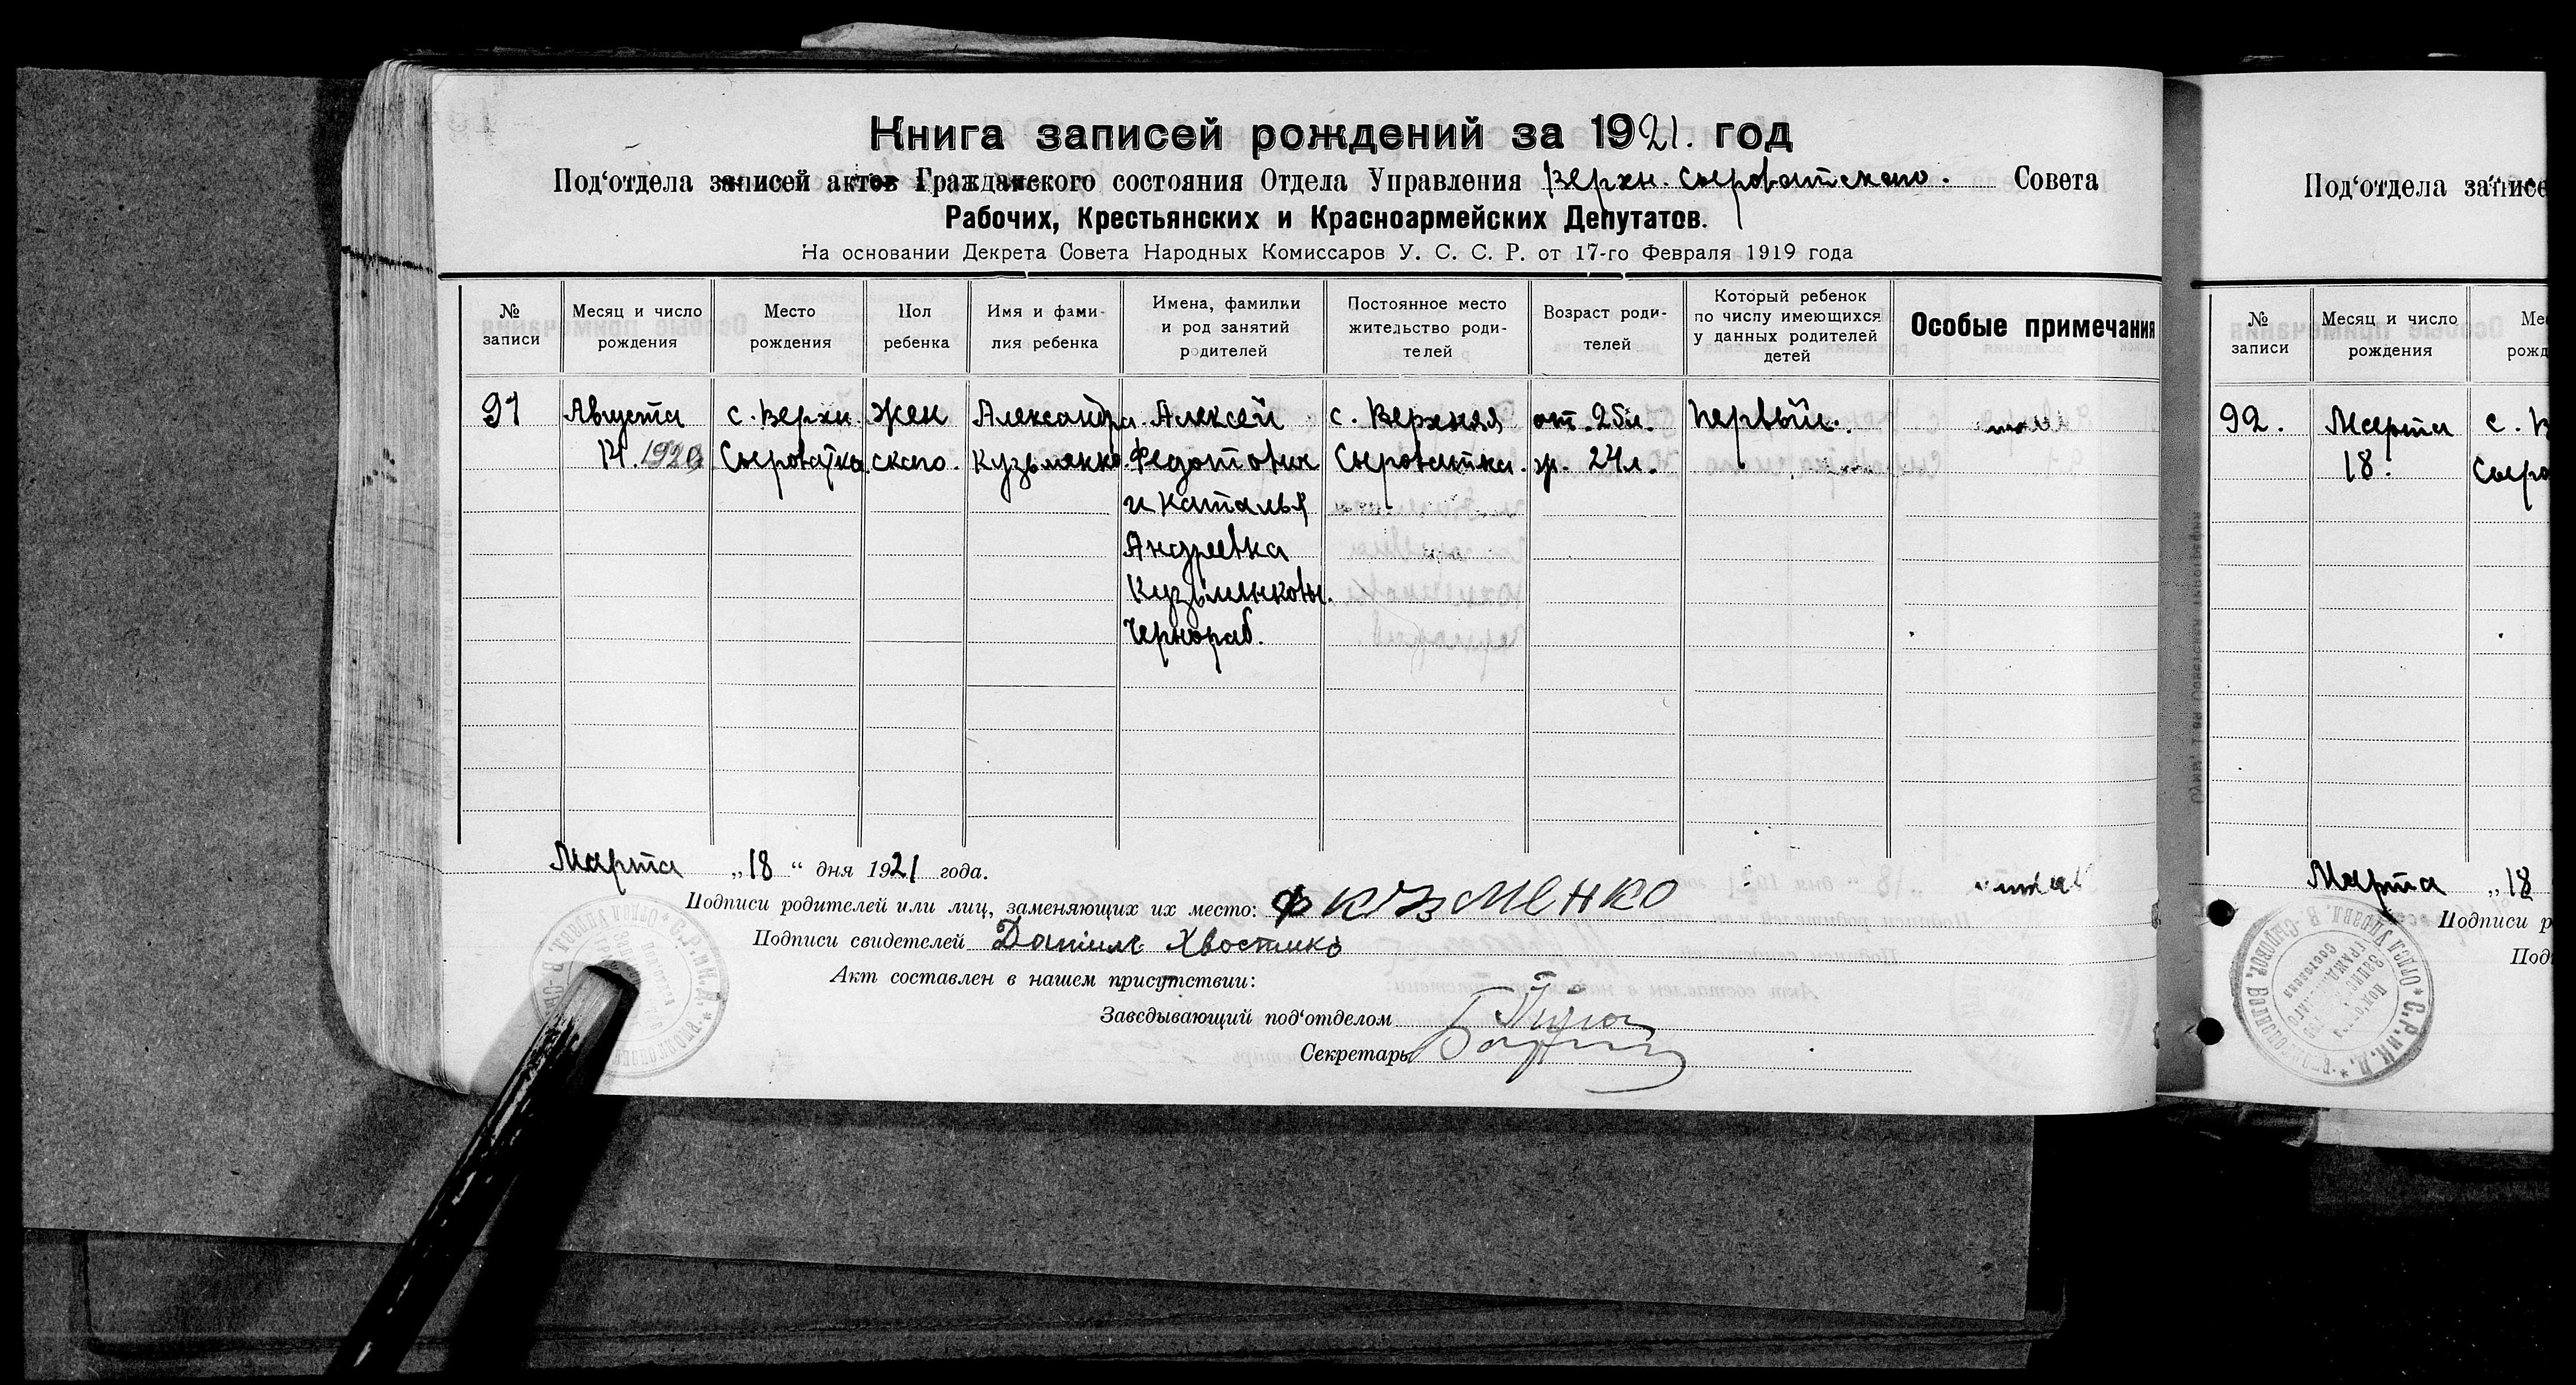 Книга записей рождений за 1921. год
Под‘отдела записей актов Гражданского состояния Отдела Управления Верхн. Сыроватскаго. Совета
Рабочих, Крестьянских и Красноармейских Депутатов.
На основании Декрета Совета Народных Комиссаров У. С. С. Р. от 17-го Февраля 1919 года
№ записи
Месяц и число рождения
Место рождения
Пол ребенка
Имя и фами-
лия ребенка
Имена, фамилии
и род занятий
родителей
Постоянное место
жительство роди-
телей
Возраст роди-
телей
Который ребенок
по числу имеющихся
у данных родителей
детей
Особые примечания
91
Августа
14. 1920
с. Верхн.
Сыроватка.
Жен
ского.
Александра
Кузьменко.
Алексей
Федотович
и Наталья
Андреевна
Кузьменковы.
Чернораб.
с. Верхняя
Сыроватка.
от. 25л.
м. 24л.
Первый.
Марта „18“ дня 1921 года.
Подписи родителей или лиц, заменяющих их место: Ф КУЗМЕНКО
Подписи свидетелей Данiил Хвостико
Акт составлен в нашем присутствии:
Заведывающий под‘отделом
Секретарь
Под‘отдела записе
№ записи
Месяц и число рождения
Ме
рожд
92.
Марта
18.
с. В
Сыро
Марта „18
Подписи р
Под